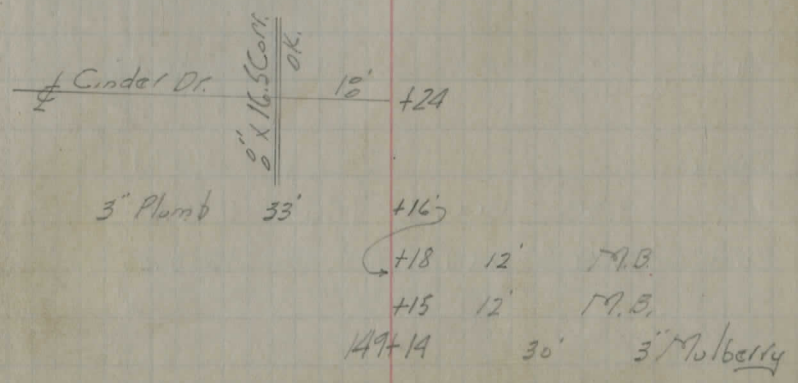 ℄ Cinder Dr. 10' +24
8" X 16.5 Corr. OK.
3" Plumb 33' +16
+18 12' M.B.
+15 12' M.B.
149+14 30' 3" Mulberry